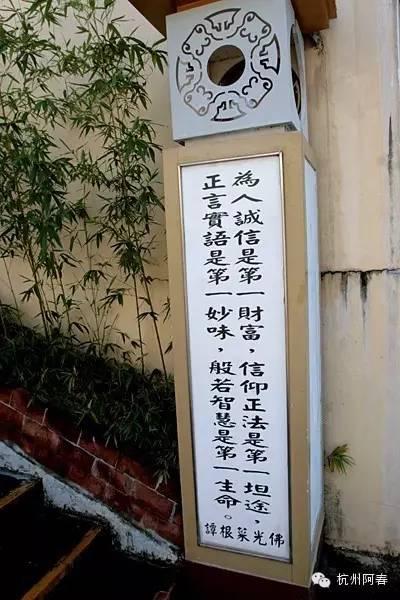 為人誠信是第一財富，信仰正法是第一坦途，
正言實語是第一妙味，般若智慧是第一生命。
佛光菜根譚
杭州阿春